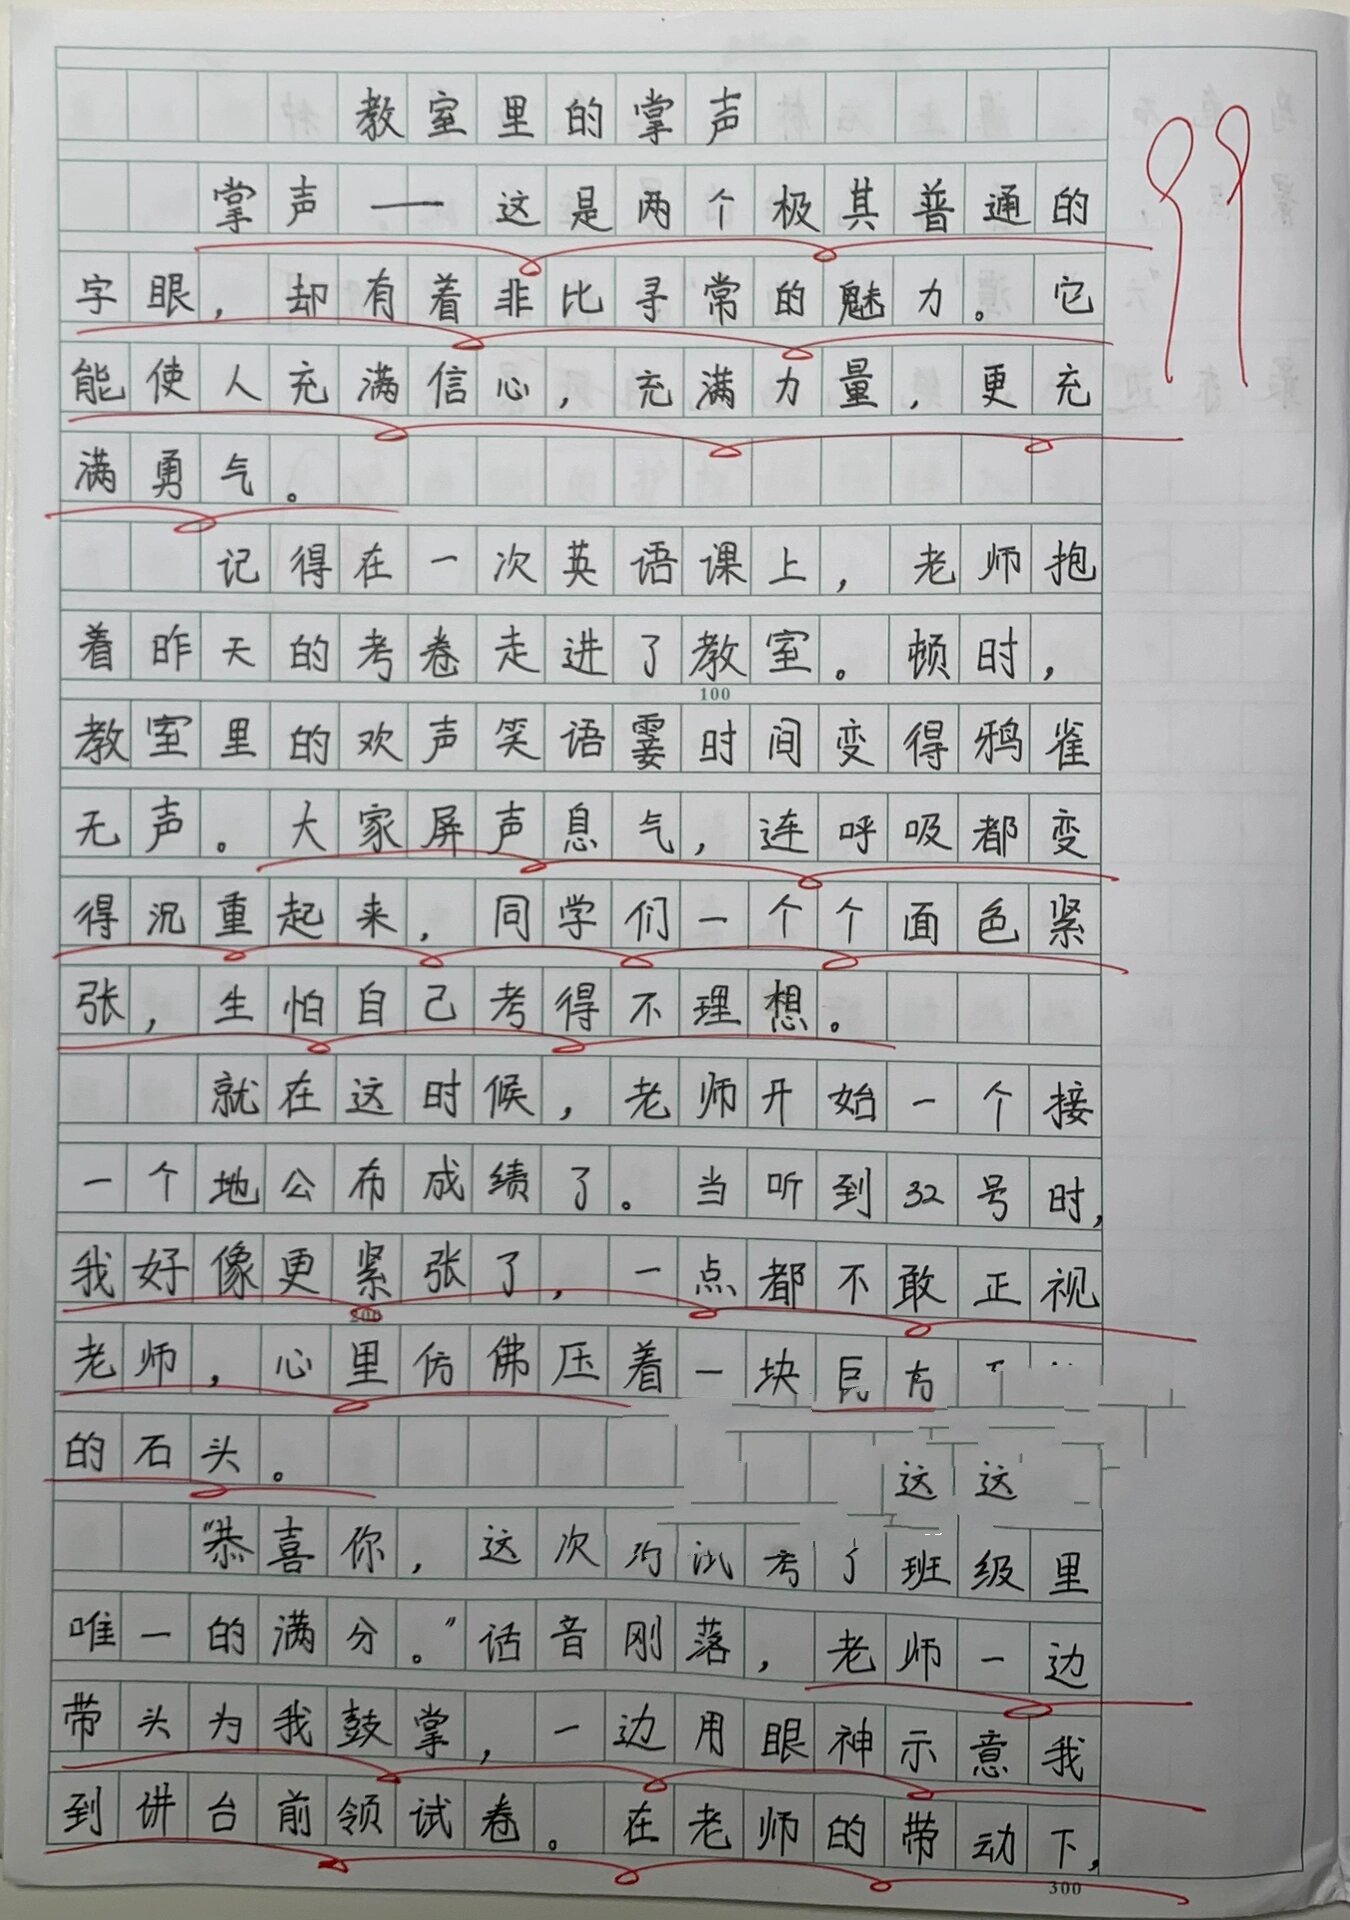 教室里的掌声
99
掌声——这是两个极其普通的
字眼，却有着非比寻常的魅力。它
能使人充满信心，充满力量，更充
满勇气。
记得在一次英语课上，老师抱
着昨天的考卷走进了教室。顿时，
100
教室里的欢声笑语霎时间变得鸦雀
无声。大家屏声息气，连呼吸都变
得沉重起来，同学们一个个面色紧
张，生怕自己考得不理想。
就在这时候，老师开始一个接
一个地公布成绩了。当听到32号时，
我好像更紧张了，一点都不敢正视
200
老师，心里仿佛压着一块
的石头。
这这
“恭喜你，这次 考了班级里
唯一的满分。”话音刚落，老师一边
带头为我鼓掌，一边用眼神示意我
到讲台前领试卷。在老师的带动下，
300